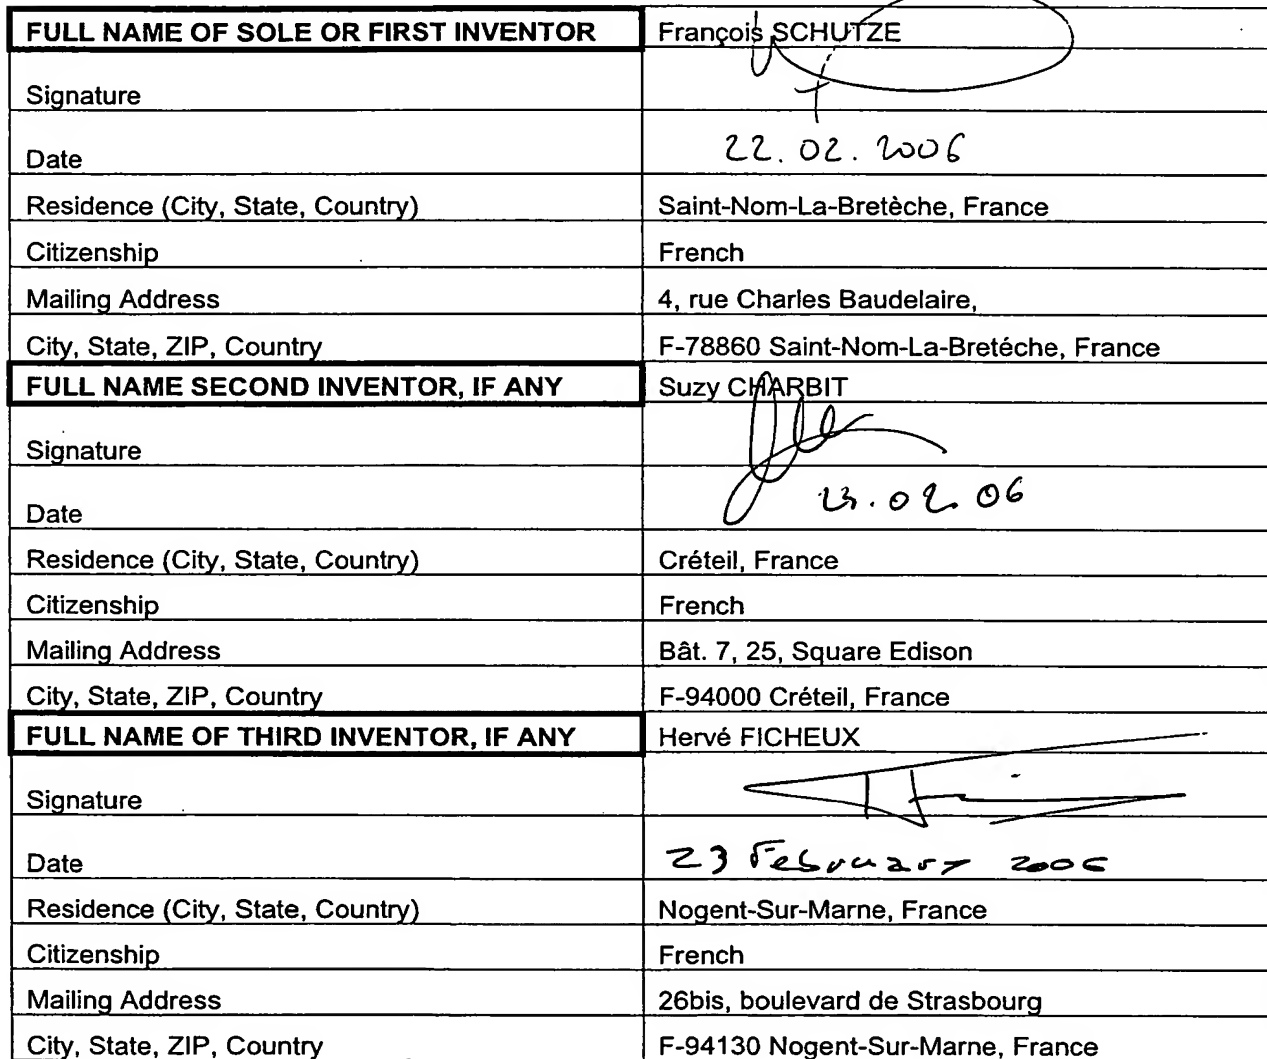 FULL NAME OF SOLE OR FIRST INVENTOR François SCHUTZE
Signature
Date 22.02.2006
Residence (City, State, Country) Saint-Nom-La-Bretèche, France
Citizenship French
Mailing Address 4, rue Charles Baudelaire,
City, State, ZIP, Country F-78860 Saint-Nom-La-Bretéche, France
FULL NAME SECOND INVENTOR, IF ANY Suzy CHARBIT
Signature
Date 23.02.06
Residence (City, State, Country) Créteil, France
Citizenship French
Mailing Address Bât. 7, 25, Square Edison
City, State, ZIP, Country F-94000 Créteil, France
FULL NAME OF THIRD INVENTOR, IF ANY Hervé FICHEUX
Signature
Date 23 February 2006
Residence (City, State, Country) Nogent-Sur-Marne, France
Citizenship French
Mailing Address 26bis, boulevard de Strasbourg
City, State, ZIP, Country F-94130 Nogent-Sur-Marne, France